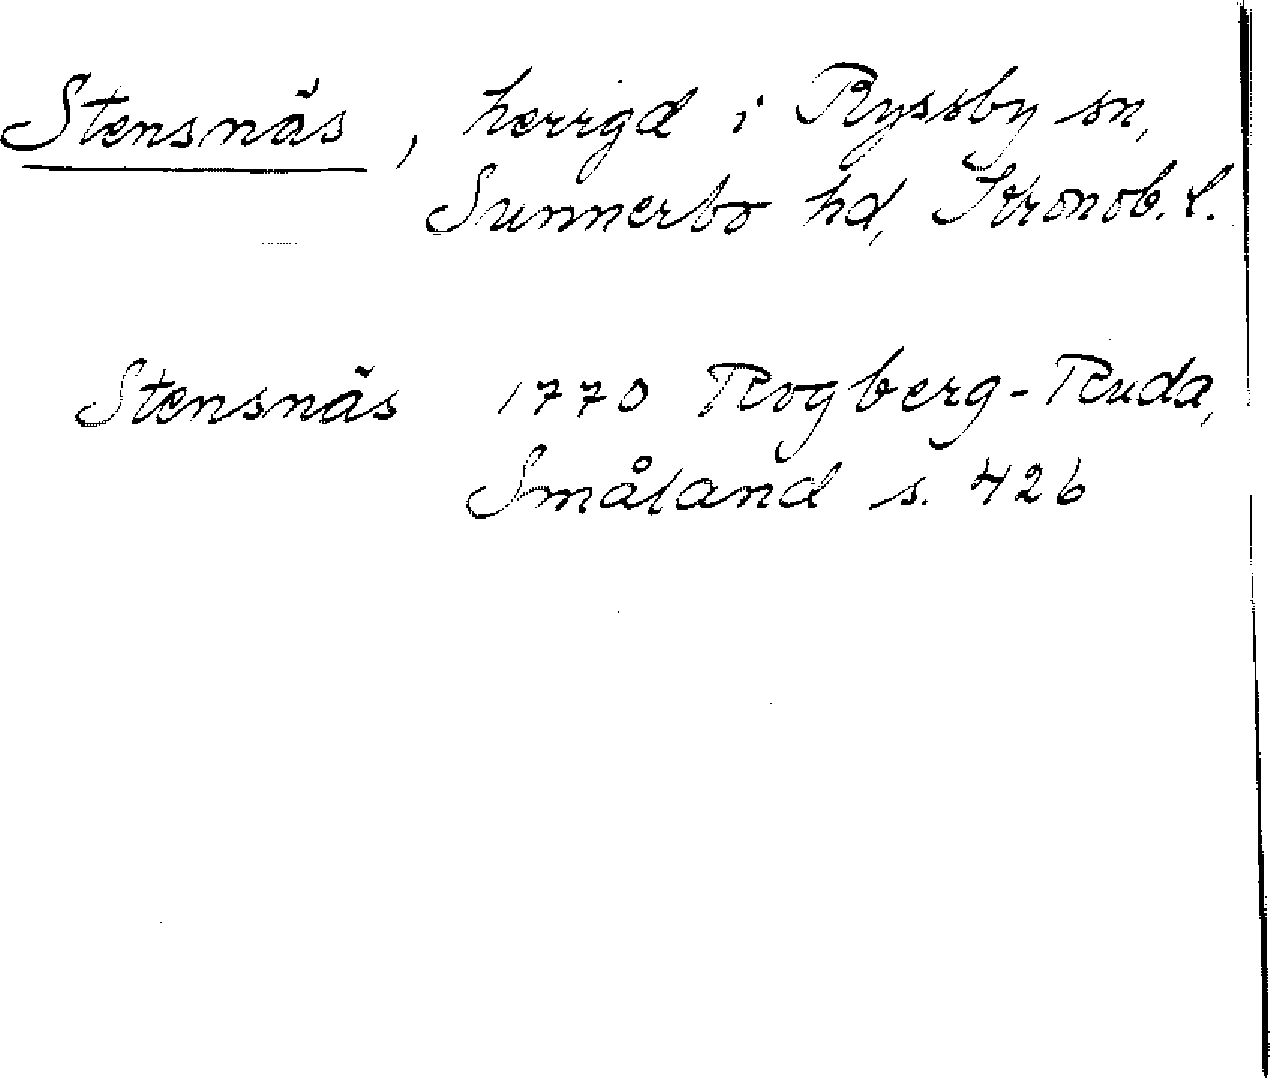 Stensnäs, herrgd i Ryssby sn,
Sunnerbo hd, Kronob. l.
Stensnäs 1770 Rogberg-Ruda,
Småland s. 426